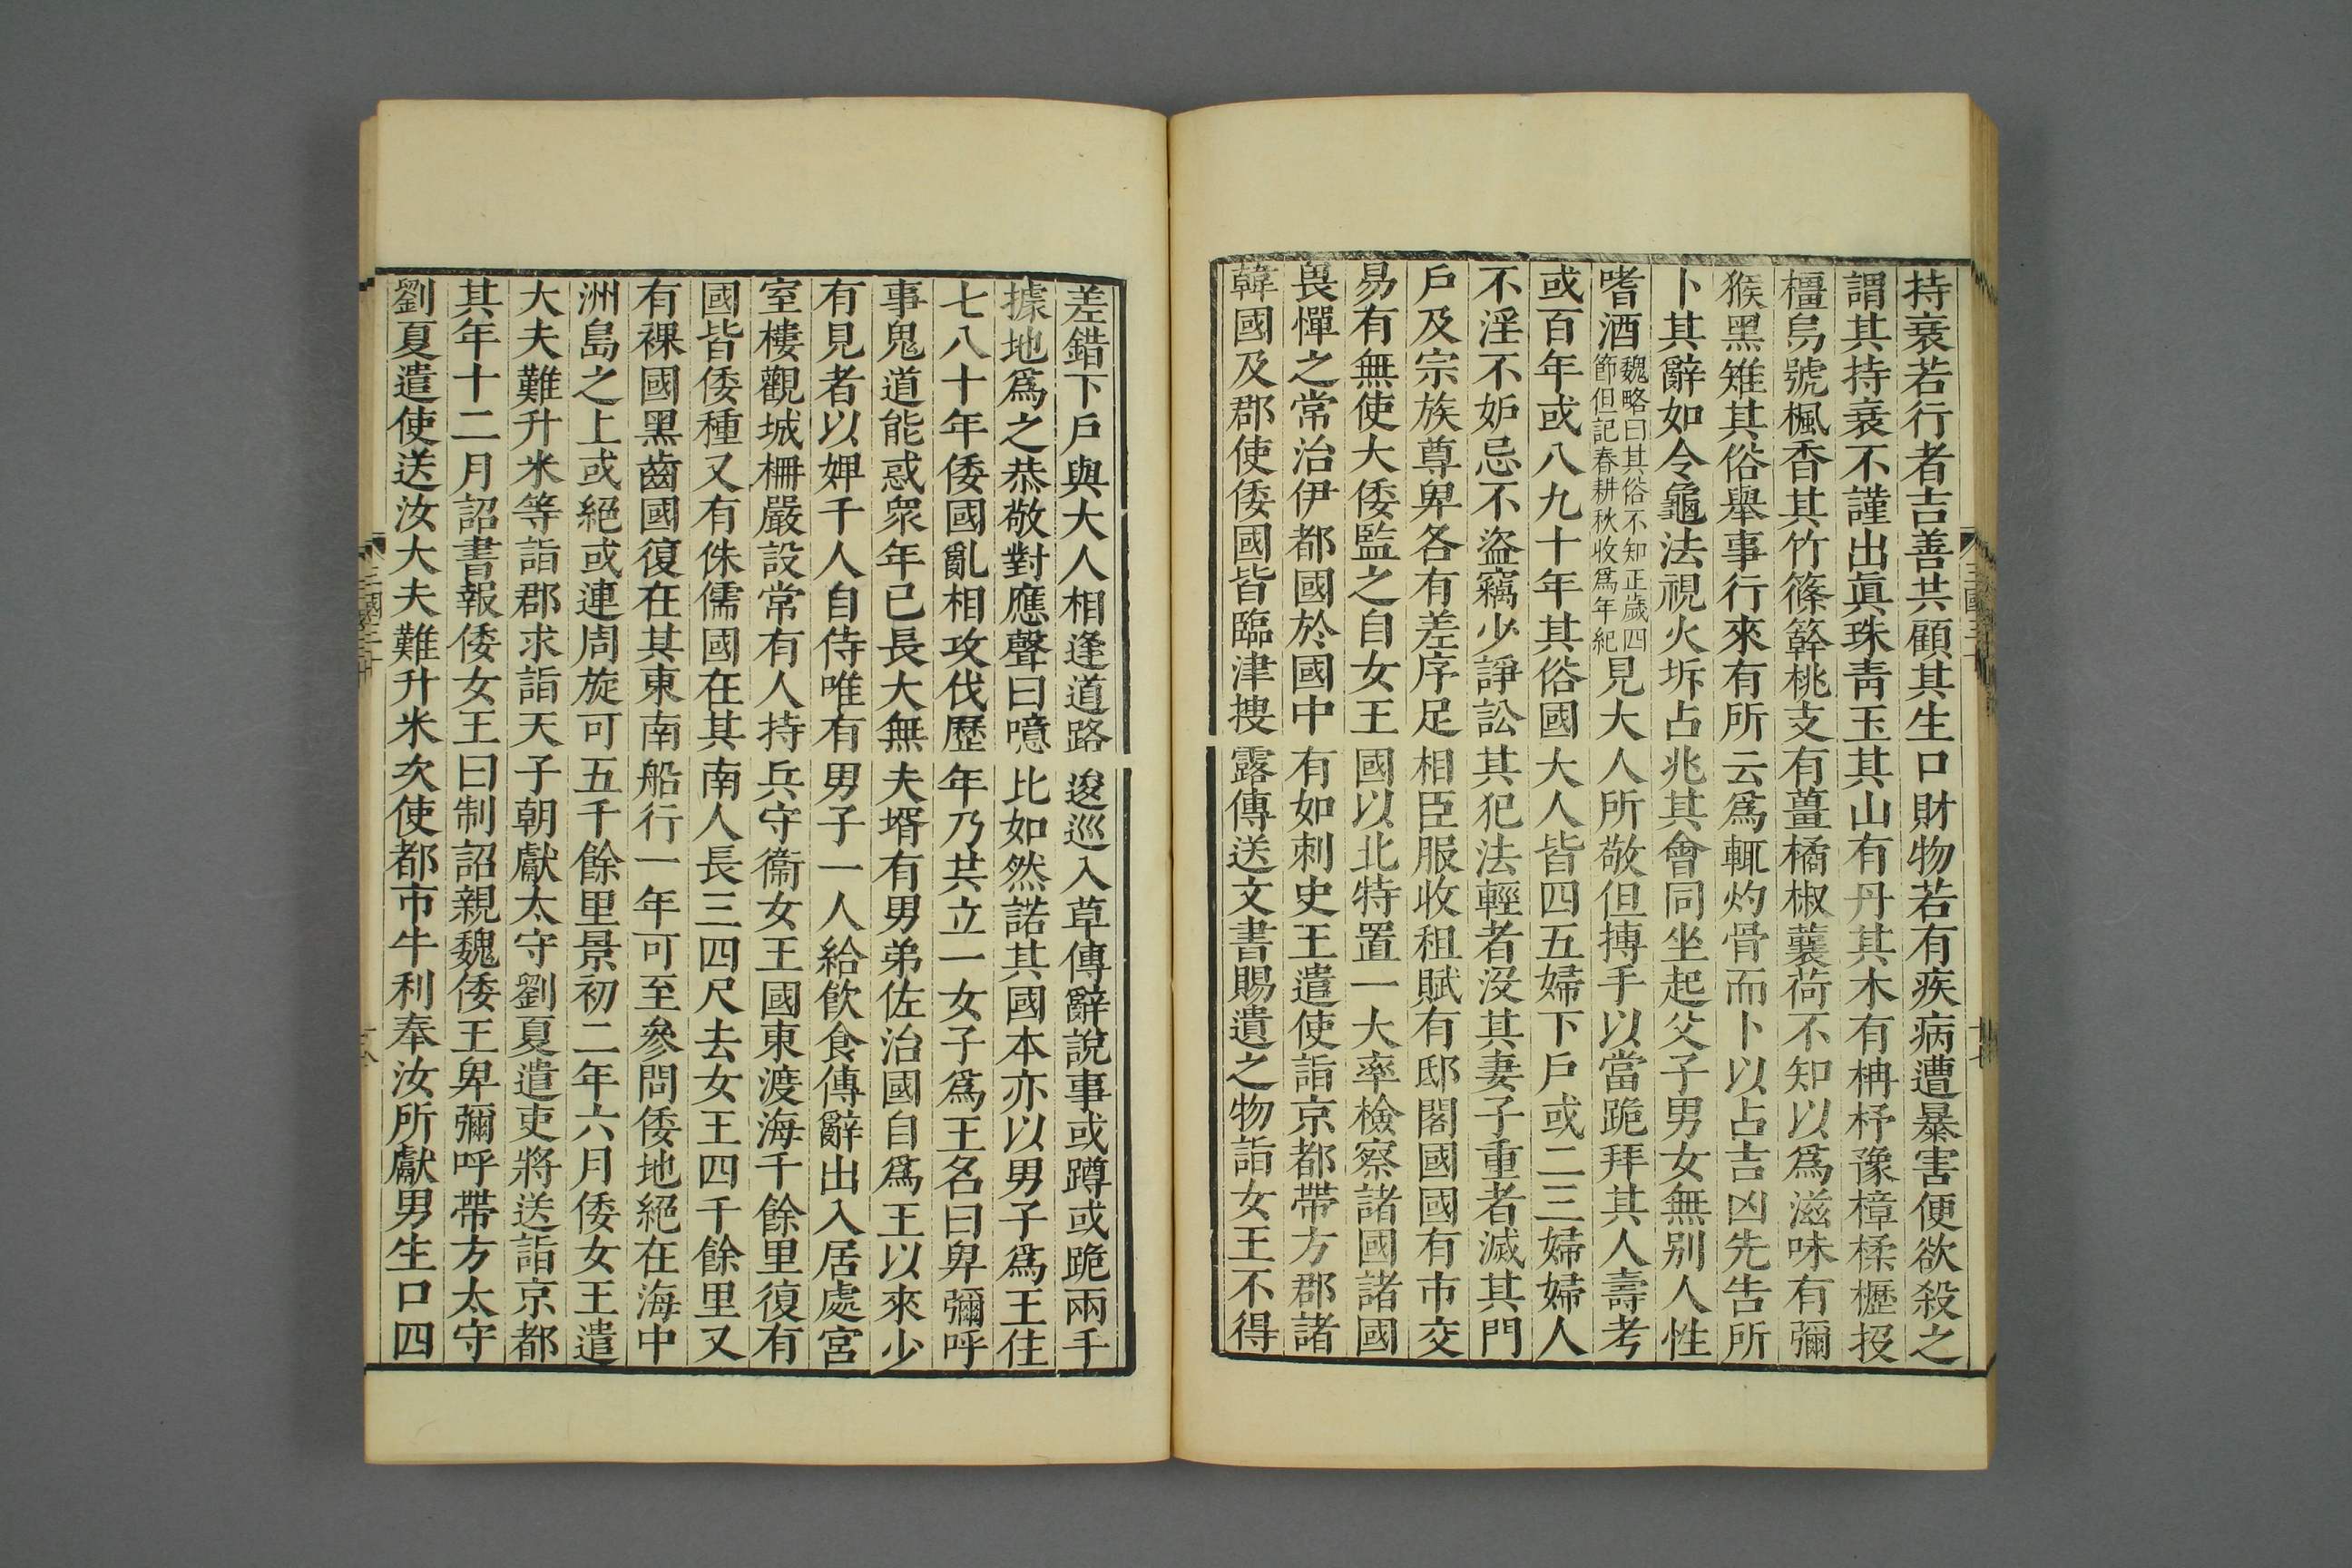 持衰若行者吉善共顧其生口財物若有疾病遭暴害便欲殺之
謂其持衰不謹出眞珠靑玉其山有丹其木有柟杼豫樟楺櫪投
橿烏號楓香其竹篠簳桃支有薑橘椒蘘荷不知以爲滋味有獼
猴黑雉其俗舉事行來有所云爲輒灼骨而卜以占吉凶先告所
卜其辭如令龜法視火坼占兆其會同坐起父子男女無别人性
嗜酒魏略曰其俗不知正歲四節但記春耕秋收爲年紀見大人所敬但搏手以當跪拜其人壽考
或百年或八九十年其俗國大人皆四五婦下戶或二三婦婦人
不淫不妒忌不盜竊少諍訟其犯法輕者沒其妻子重者滅其門
戶及宗族尊卑各有差序足相臣服收租賦有邸閣國國有市交
易有無使大倭監之自女王國以北特置一大率檢察諸國諸國
畏憚之常治伊都國於國中有如刺史王遣使詣京都帶方郡諸
韓國及郡使倭國皆臨津搜露傳送文書賜遺之物詣女王不得
差錯下戶與大人相逢道路逡巡入草傳辭說事或蹲或跪兩手
據地爲之恭敬對應聲曰噫比如然諾其國本亦以男子爲王住
七八十年倭國亂相攻伐歷年乃共立一女子爲王名曰卑彌呼
事鬼道能惑衆年已長大無夫壻有男弟佐治國自爲王以來少
有見者以婢千人自侍唯有男子一人給飮食傳辭出入居處宮
室樓觀城柵嚴設常有人持兵守衞女王國東渡海千餘里復有
國皆倭種又有侏儒國在其南人長三四尺去女王四千餘里又
有裸國黑齒國復在其東南船行一年可至參問倭地絕在海中
洲島之上或絕或連周旋可五千餘里景初二年六月倭女王遣
大夫難升米等詣郡求詣天子朝獻太守劉夏遣吏將送詣京都
其年十二月詔書報倭女王曰制詔親魏倭王卑彌呼帶方太守
劉夏遣使送汝大夫難升米次使都市牛利奉汝所獻男生口四